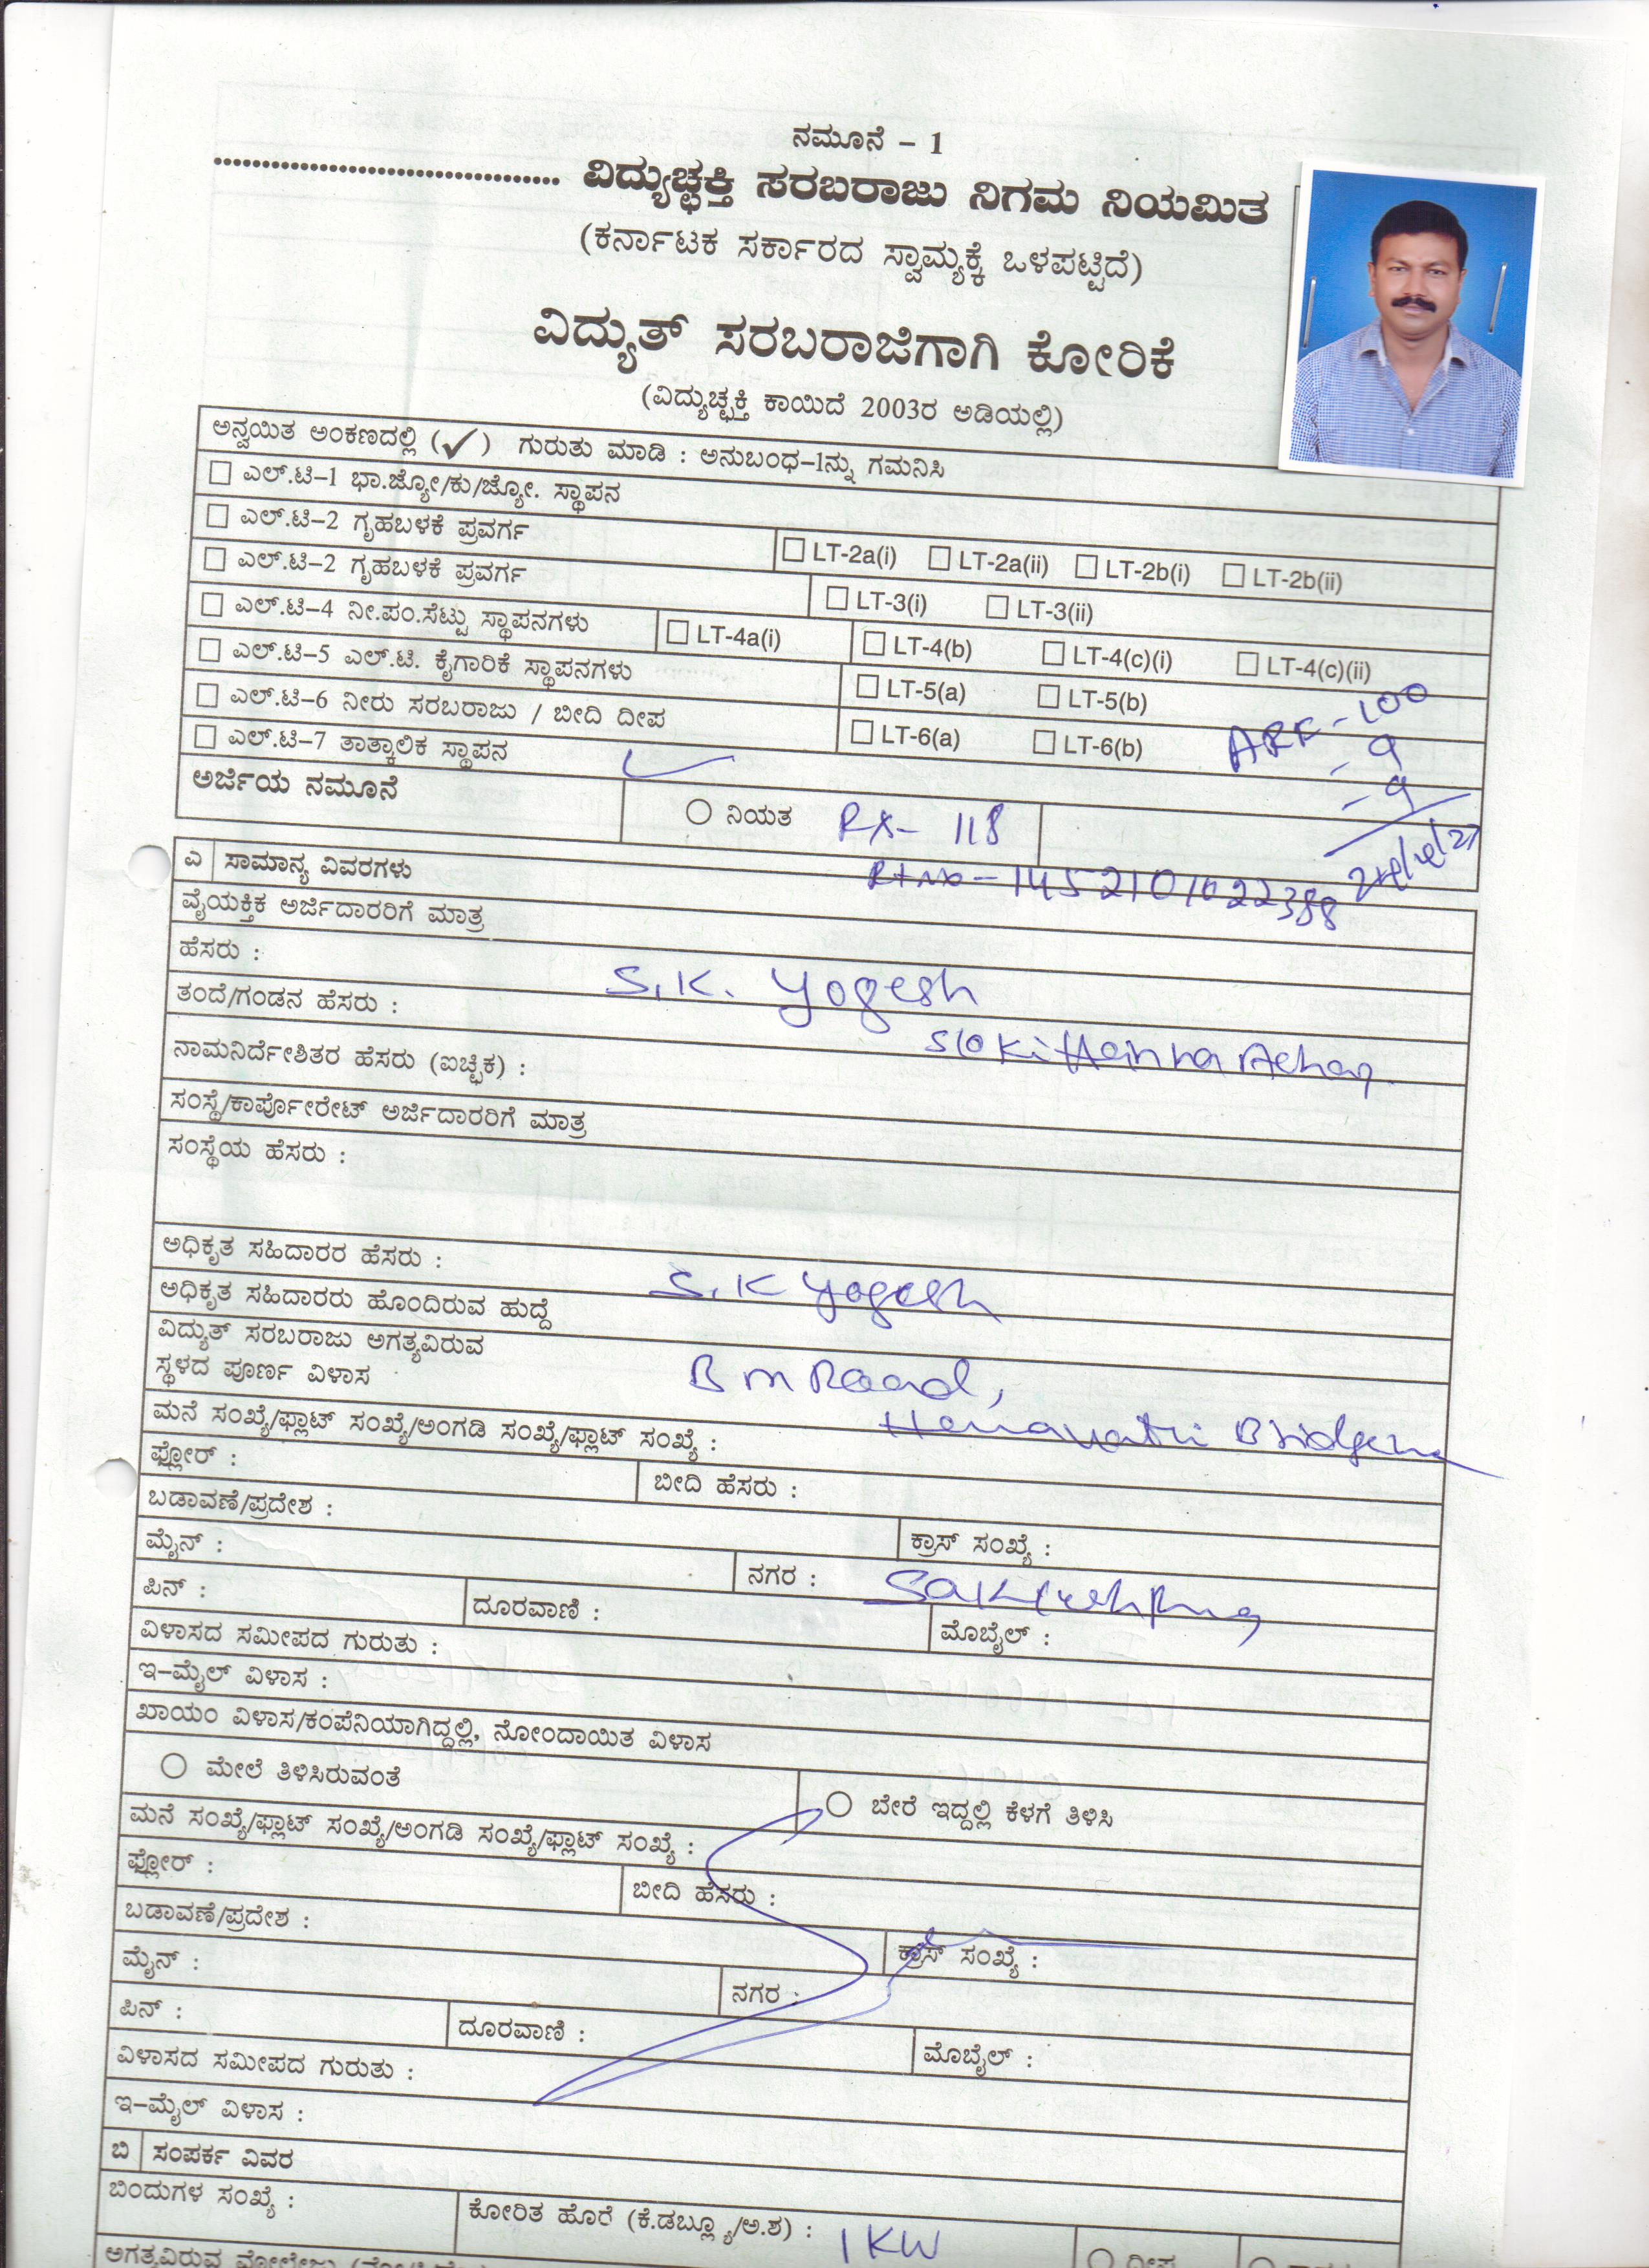 ನಮೂನೆ – 1
.................................... ವಿದ್ಯುಚ್ಛಕ್ತಿ ಸರಬರಾಜು ನಿಗಮ ನಿಯಮಿತ
(ಕರ್ನಾಟಕ ಸರ್ಕಾರದ ಸ್ವಾಮ್ಯಕ್ಕೆ ಒಳಪಟ್ಟಿದೆ)
ವಿದ್ಯುತ್ ಸರಬರಾಜಿಗಾಗಿ ಕೋರಿಕೆ
(ವಿದ್ಯುಚ್ಛಕ್ತಿ ಕಾಯಿದೆ 2003ರ ಅಡಿಯಲ್ಲಿ)
ಅನ್ವಯಿತ ಅಂಕಣದಲ್ಲಿ (✓) ಗುರುತು ಮಾಡಿ : ಅನುಬಂಧ–1ನ್ನು ಗಮನಿಸಿ
☐ ಎಲ್.ಟಿ–1 ಭಾ.ಜ್ಯೋ/ಕು/ಜ್ಯೋ. ಸ್ಥಾಪನ
☐ ಎಲ್.ಟಿ–2 ಗೃಹಬಳಕೆ ಪ್ರವರ್ಗ ☐ LT-2a(i) ☐ LT-2a(ii) ☐ LT-2b(i) ☐ LT-2b(ii)
☐ ಎಲ್.ಟಿ–2 ಗೃಹಬಳಕೆ ಪ್ರವರ್ಗ ☐ LT-3(i) ☐ LT-3(ii)
☐ ಎಲ್.ಟಿ–4 ನೀ.ಪಂ.ಸೆಟ್ಟು ಸ್ಥಾಪನಗಳು ☐ LT-4a(i) ☐ LT-4(b) ☐ LT-4(c)(i) ☐ LT-4(c)(ii)
☐ ಎಲ್.ಟಿ–5 ಎಲ್.ಟಿ. ಕೈಗಾರಿಕೆ ಸ್ಥಾಪನಗಳು ☐ LT-5(a) ☐ LT-5(b)
☐ ಎಲ್.ಟಿ–6 ನೀರು ಸರಬರಾಜು / ಬೀದಿ ದೀಪ ☐ LT-6(a) ☐ LT-6(b)
☐ ಎಲ್.ಟಿ–7 ತಾತ್ಕಾಲಿಕ ಸ್ಥಾಪನ
ARF - 100
- 9
- 9
ಅರ್ಜಿಯ ನಮೂನೆ ○ ನಿಯತ
ಎ ಸಾಮಾನ್ಯ ವಿವರಗಳು
ವೈಯಕ್ತಿಕ ಅರ್ಜಿದಾರರಿಗೆ ಮಾತ್ರ
ಹೆಸರು : S.K. Yogesh
ತಂದೆ/ಗಂಡನ ಹೆಸರು : S/o
ನಾಮನಿರ್ದೇಶಿತರ ಹೆಸರು (ಐಚ್ಛಿಕ) :
ಸಂಸ್ಥೆ/ಕಾರ್ಪೊರೇಟ್ ಅರ್ಜಿದಾರರಿಗೆ ಮಾತ್ರ
ಸಂಸ್ಥೆಯ ಹೆಸರು :
ಅಧಿಕೃತ ಸಹಿದಾರರ ಹೆಸರು : S.K Yogesh
ಅಧಿಕೃತ ಸಹಿದಾರರು ಹೊಂದಿರುವ ಹುದ್ದೆ
ವಿದ್ಯುತ್ ಸರಬರಾಜು ಅಗತ್ಯವಿರುವ
ಸ್ಥಳದ ಪೂರ್ಣ ವಿಳಾಸ B M Road,
ಮನೆ ಸಂಖ್ಯೆ/ಫ್ಲಾಟ್ ಸಂಖ್ಯೆ/ಅಂಗಡಿ ಸಂಖ್ಯೆ/ಫ್ಲಾಟ್ ಸಂಖ್ಯೆ :
ಫ್ಲೋರ್ : ಬೀದಿ ಹೆಸರು :
ಬಡಾವಣೆ/ಪ್ರದೇಶ :
ಮೈನ್ : ಕ್ರಾಸ್ ಸಂಖ್ಯೆ :
ನಗರ :
ಪಿನ್ : ದೂರವಾಣಿ : ಮೊಬೈಲ್ :
ವಿಳಾಸದ ಸಮೀಪದ ಗುರುತು :
ಇ–ಮೈಲ್ ವಿಳಾಸ :
ಖಾಯಂ ವಿಳಾಸ/ಕಂಪೆನಿಯಾಗಿದ್ದಲ್ಲಿ, ನೋಂದಾಯಿತ ವಿಳಾಸ
○ ಮೇಲೆ ತಿಳಿಸಿರುವಂತೆ ○ ಬೇರೆ ಇದ್ದಲ್ಲಿ ಕೆಳಗೆ ತಿಳಿಸಿ
ಮನೆ ಸಂಖ್ಯೆ/ಫ್ಲಾಟ್ ಸಂಖ್ಯೆ/ಅಂಗಡಿ ಸಂಖ್ಯೆ/ಫ್ಲಾಟ್ ಸಂಖ್ಯೆ :
ಫ್ಲೋರ್ : ಬೀದಿ ಹೆಸರು :
ಬಡಾವಣೆ/ಪ್ರದೇಶ :
ಮೈನ್ : ಕ್ರಾಸ್ ಸಂಖ್ಯೆ :
ನಗರ :
ಪಿನ್ : ದೂರವಾಣಿ : ಮೊಬೈಲ್ :
ವಿಳಾಸದ ಸಮೀಪದ ಗುರುತು :
ಇ–ಮೈಲ್ ವಿಳಾಸ :
ಬಿ ಸಂಪರ್ಕ ವಿವರ
ಬಿಂದುಗಳ ಸಂಖ್ಯೆ : ಕೋರಿತ ಹೊರೆ (ಕೆ.ಡಬ್ಲ್ಯೂ/ಅ.ಶ) : 1 KW